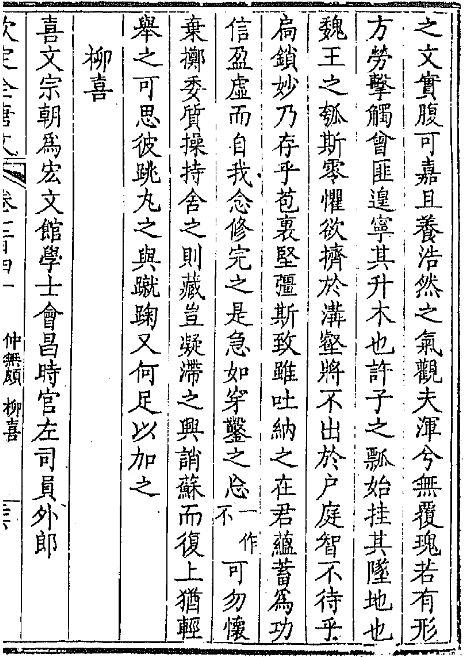 之文實腹可嘉且養浩然之氣觀夫渾兮無覆瑰若有形
方勞擊觸曾匪遑寧其升木也許子之瓢始挂其墜地也
魏王之瓠斯零懼欲擠於溝壑將不出於户庭智不待乎
扃鎖妙乃存乎苞裹堅彊斯致雖吐納之在君蘊蓄為功
信盈虛而自我念修完之是急如穿鑿之忌一作不可勿懷
棄擲委質操持舍之則藏豈凝滯之興誚蘇而復上猶輕
舉之可思彼跳丸之與蹴踘又何足以加之
柳喜
喜文宗朝為宏文館學士會昌時官左司員外郎
欽定全唐文 卷 仲無頗 柳喜